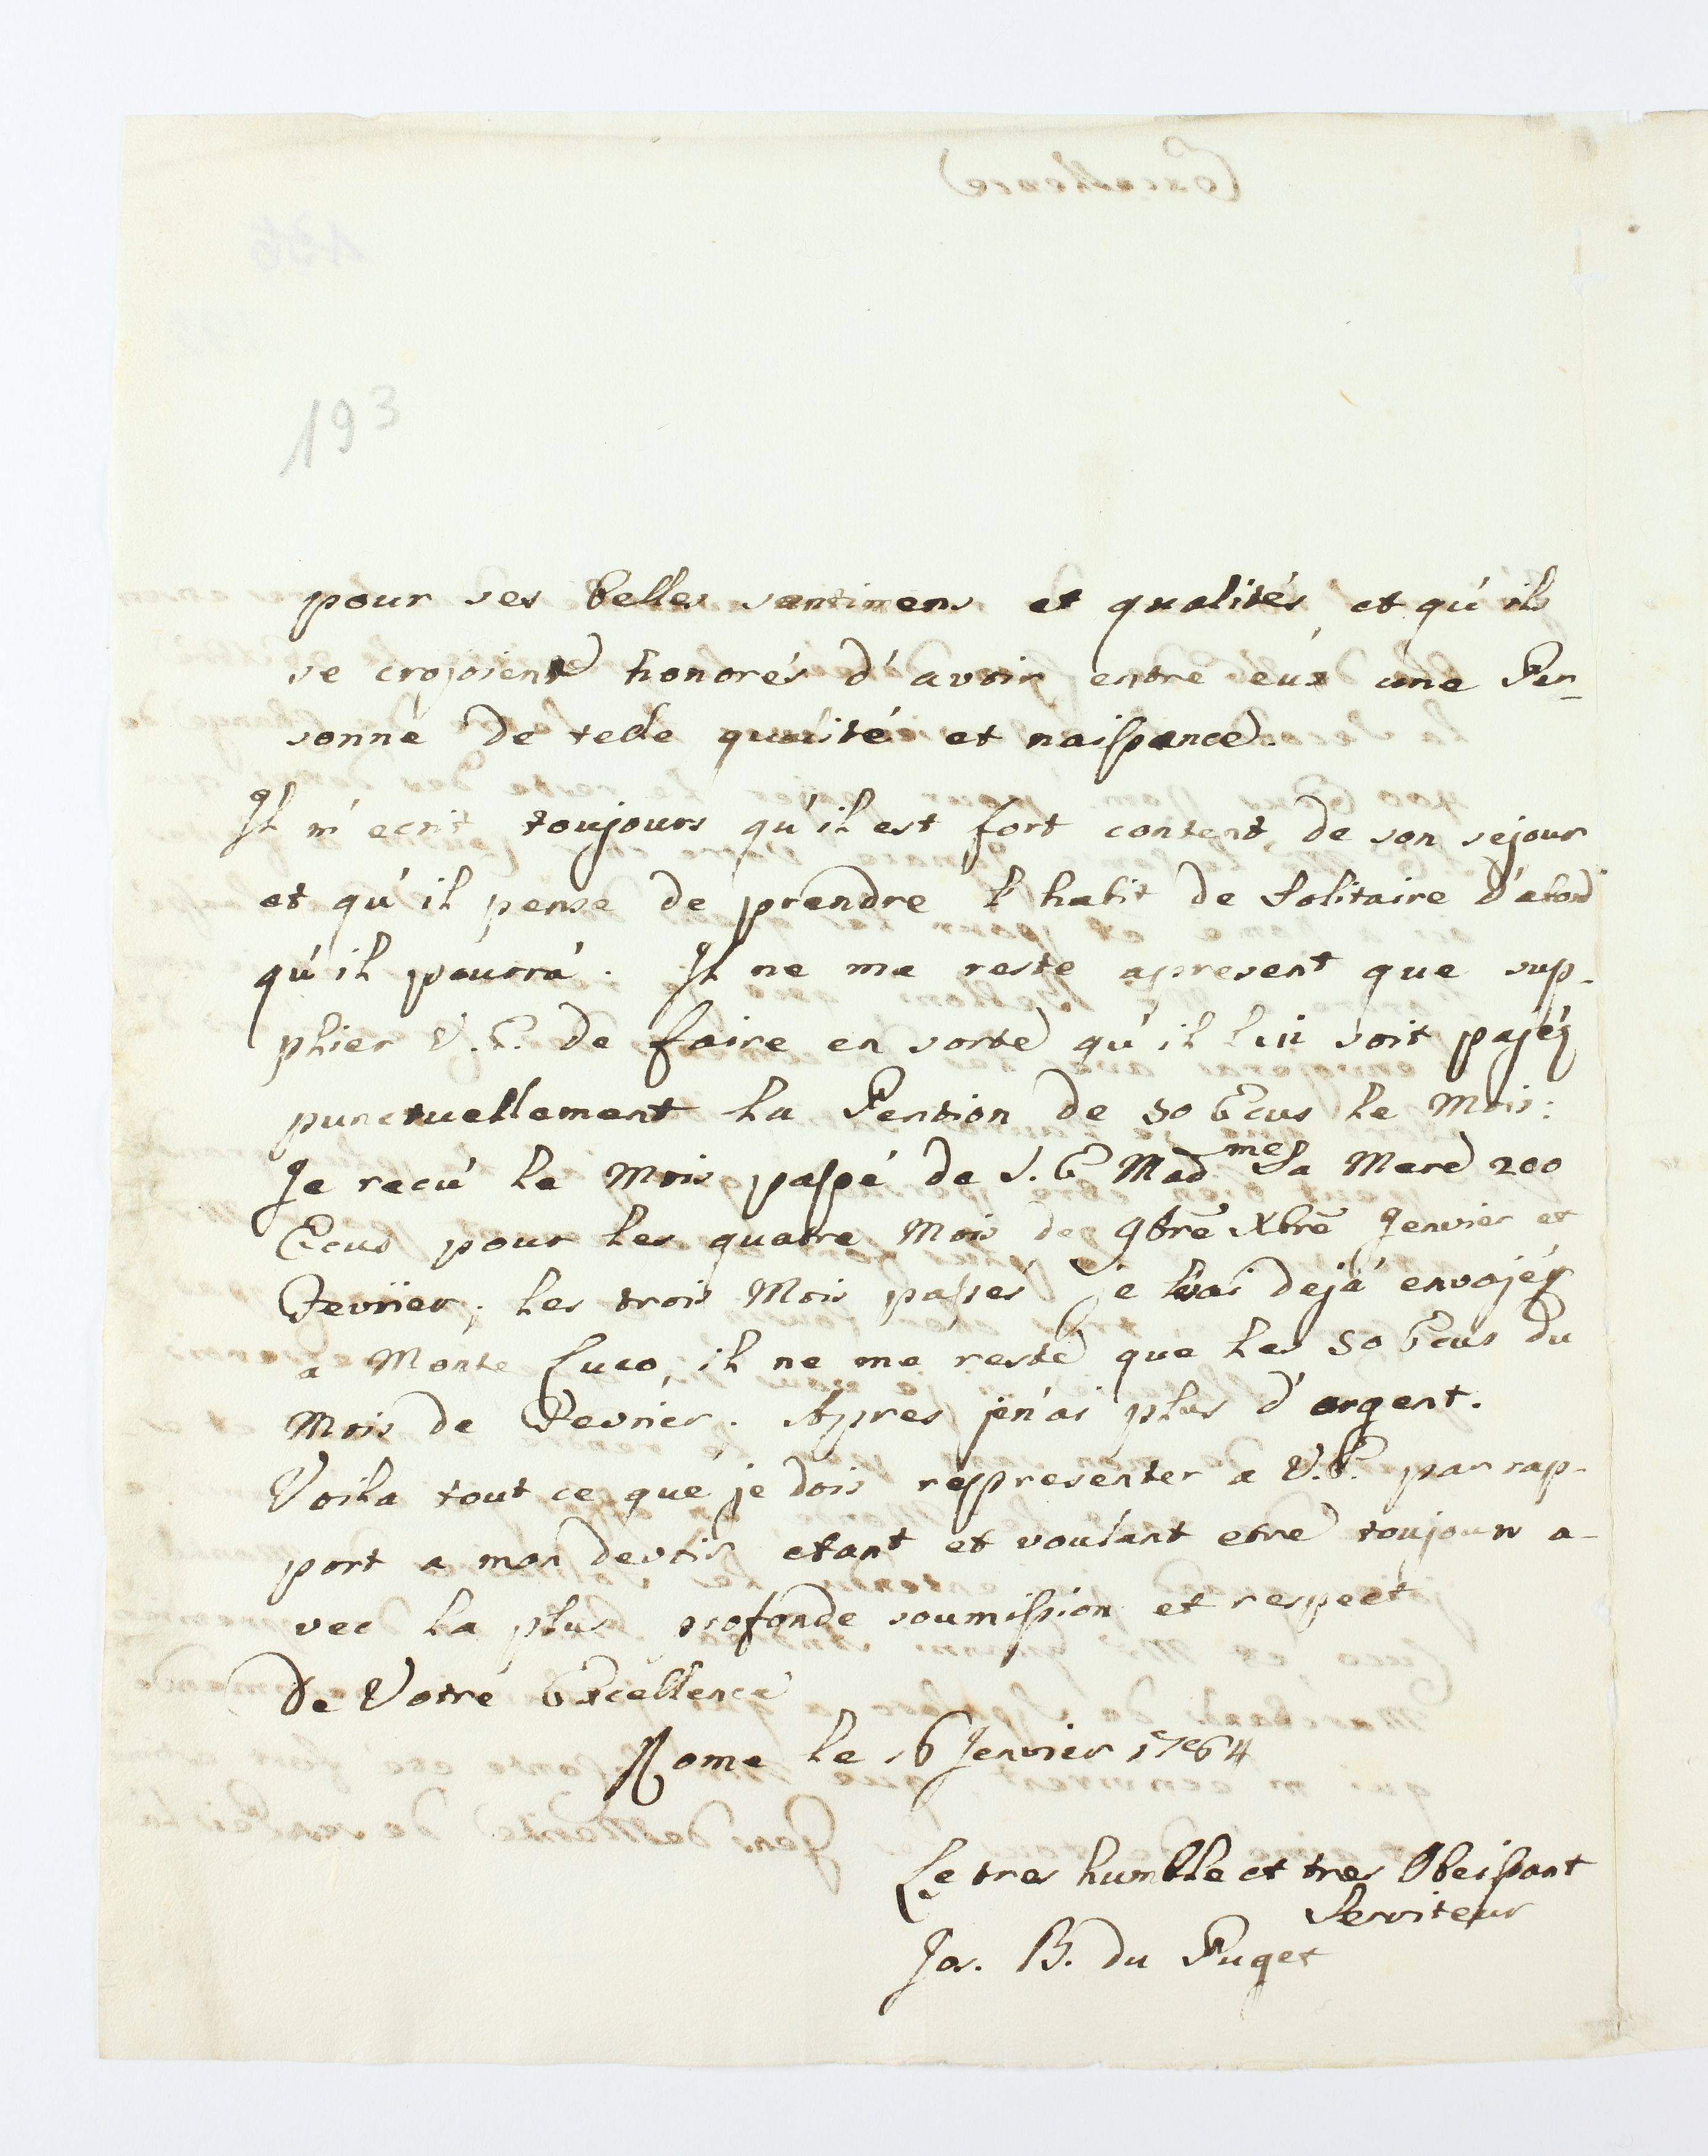 193
pour ses belles sentimens et qualités, et qu'ils
se crojoient honorés d'avoir entre eux une Per-
sonne de telle qualité et naissance.
Il m'ecrit toujours qu'il est fort content, de son sejour
et qu'il pense de prendre l'habit de Solitaire d'abord
qu'il pourrá. Il ne me reste apresent que sup-
plier V. E. de faire en sorte qu'il lui soit pajéz
punctuellement la Pension de 50 Ecus le Mois:
Je reçu le Mois passé de S. E. Mad.me Sa Mere 200
Ecus pour les quatre Mois de 9bre Xbre Jenvier et
Fevrier, les trois Mois passés je l'vai dejá envojéz
a Monte Luco, il ne me reste que les 50 Ecus du
Mois de Fevrier. Apres jén'ai plus d'argent.
Voila tout ce que je dois representer a V. E. par rap-
port a mon devoir etant et voulant etre toujours a-
vec la plus profonde soumission et respect
De Votre Excellence
Rome le 16 Jenvier 1764
Le tres humble et tres Obeissant
Serviteur
Jos. B. du Puget